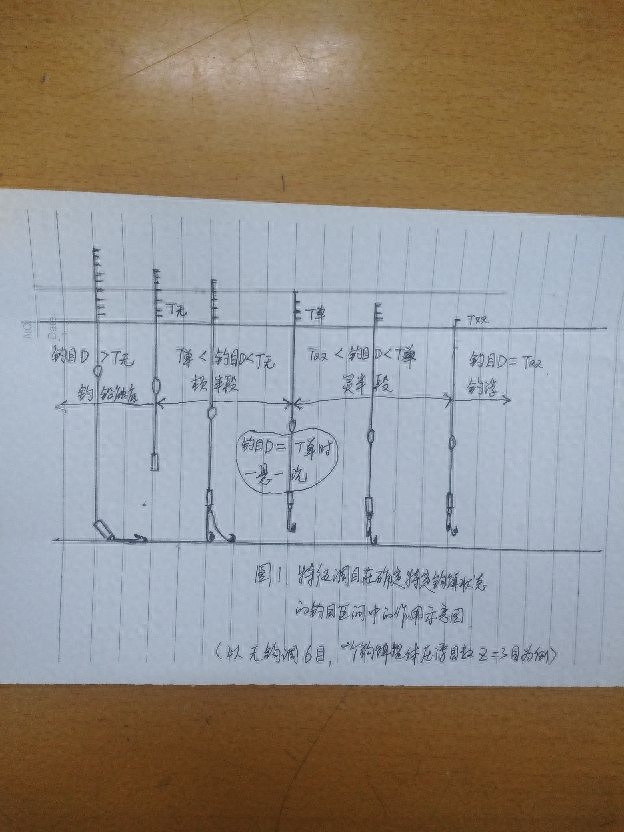 NO.
Date
T无
T单
T双
钓目D>T无
钓铅触底
T单<钓目D<T无
顿半段
钓目D=T单时
一悬一说
T双<钓目D<T单
灵半段
钓目D=T双
钓浮
图1 特征调目在确定特定钩饵状态
的钓目区间中的作用示意图
(以无钩调6目,一个钩饵整体压浮目数Z=3目为例)